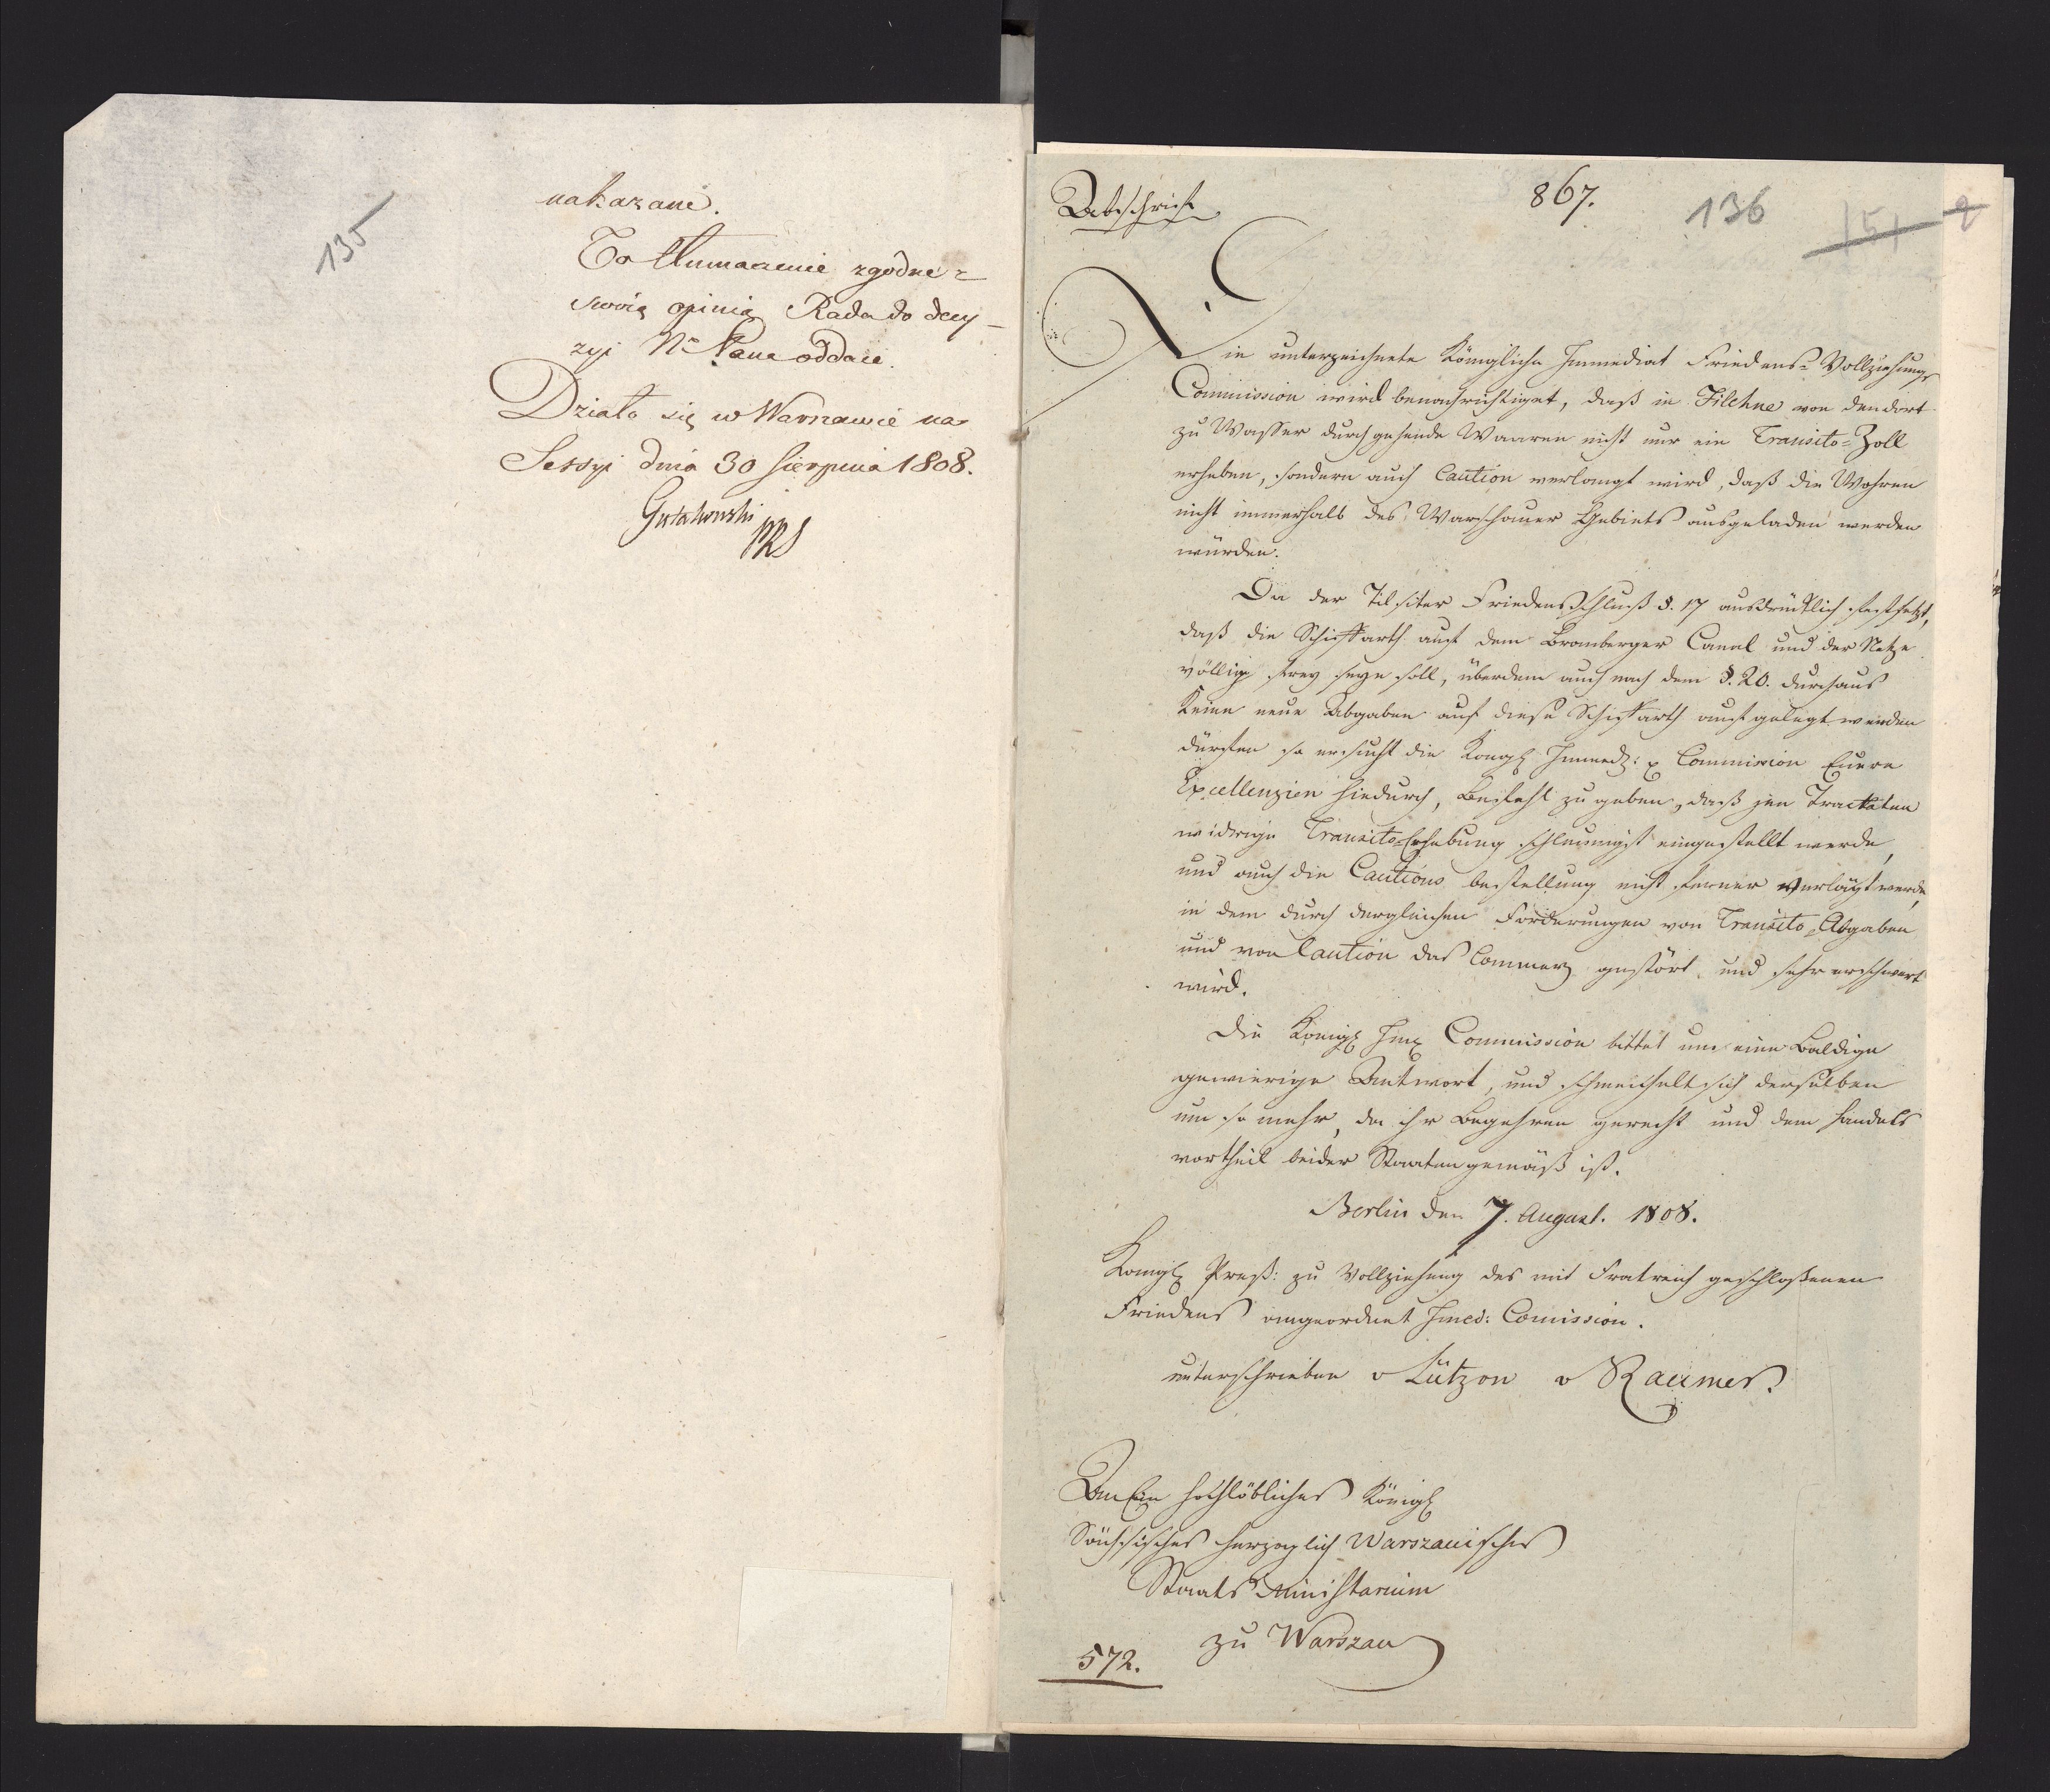 135
nakazane.
To tłumaczenie zgodne z
swoią opinią Rada do decy-
zyi Nº Pana oddaie.
Działo się w Warszawie na
Sessyi dnia 30 Sierpnia 1808.
Gutakowski
PRS
Abschrift
867.
136
151
Die unterzeichnete Königliche Immediat Friedens-Vollziehungs
Commission wird benachrichtiget, daß in Filehne von den dort
zu Wasser durchgehende Waaren nicht nur ein Transito-Zoll
erhoben, sondern auch Caution verlangt wird, daß die Wahren
nicht innerhalb des Warschauer Gebiets ausgeladen werden
würden.
Da der Tilsiter Friedensschluß §. 17 ausdrücklich festsetzt,
daß die Schiffarth auf dem Bromberger Canal und der Netze
völlig frey seyn soll, überdem auch nach dem §. 20. durchaus
Keine neue Abgaben auf diese Schiffarth aufgelegt werden
dürfen so ersucht die Königl Immedt: Commission Euere
Excellenzien hiedurch, Befehl zu geben, daß jene Tractaten
widrige Transito-Erhebung schleunigst eingestellt werde,
und auch die Cautions bestellung nicht ferner verlägt werde,
in dem durch dergleichen Forderungen von Transito Abgaben
und von Caution das Commerz gestört, und sehr erschwert
wird.
Die Königl Im Commission bittet um eine Baldige
gewierige Antwort, und schmeichelt sich derselben
um so mehr, da ihr Begehren gerecht und dem Handels
vortheil beider Staaten gemäß ist.
Berlin den 7. August. 1808.
Königl Preß: zu Vollziehung des mit Frakreich geschloßenen
Friedens angeordnet Imed: Comission.
unterschrieben v Lützow v Raumer.
An Ein hochlöbliches Königl
Sächsisches herzoglich Warszauisches
Staats Ministerium
zu Warszau
572.